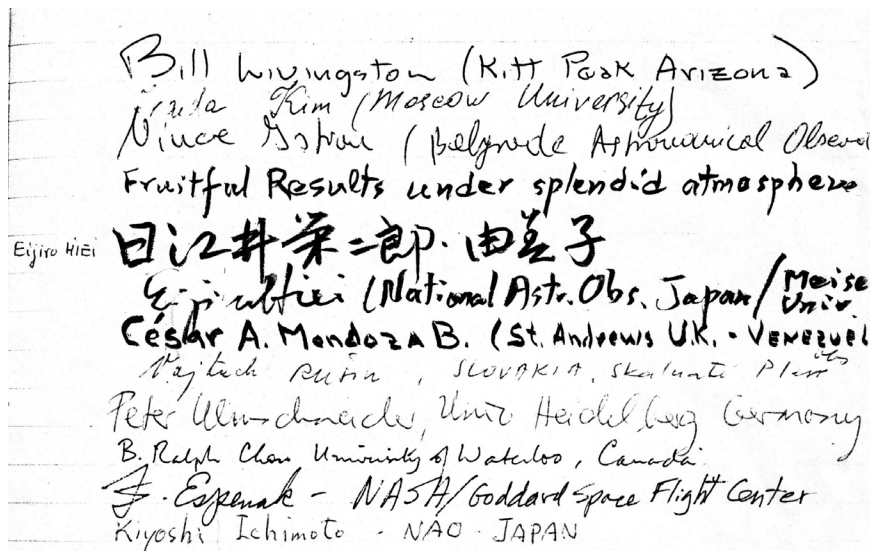 Bill Livingston (Kitt Peak Arizona)
Kim (Moscow University)
Vince (Belgrade Astronomical Observat
Fruitful Results under splendid atmosphere
Eijiro HIEI
日江井榮二郎・由美子
(National Astr. Obs. Japan / Meisei Univ.
César A. Mendoza B. (St. Andrews U.K. - VENEZUEL
Vojtech Rušin, SLOVAKIA, Skalnaté Pleso
Peter Ulmschneider, Univ Heidelberg Germany
B. Ralph Chou University of Waterloo, Canada
F. Espenak - NASA/Goddard Space Flight Center
Kiyoshi Ichimoto - NAO - JAPAN